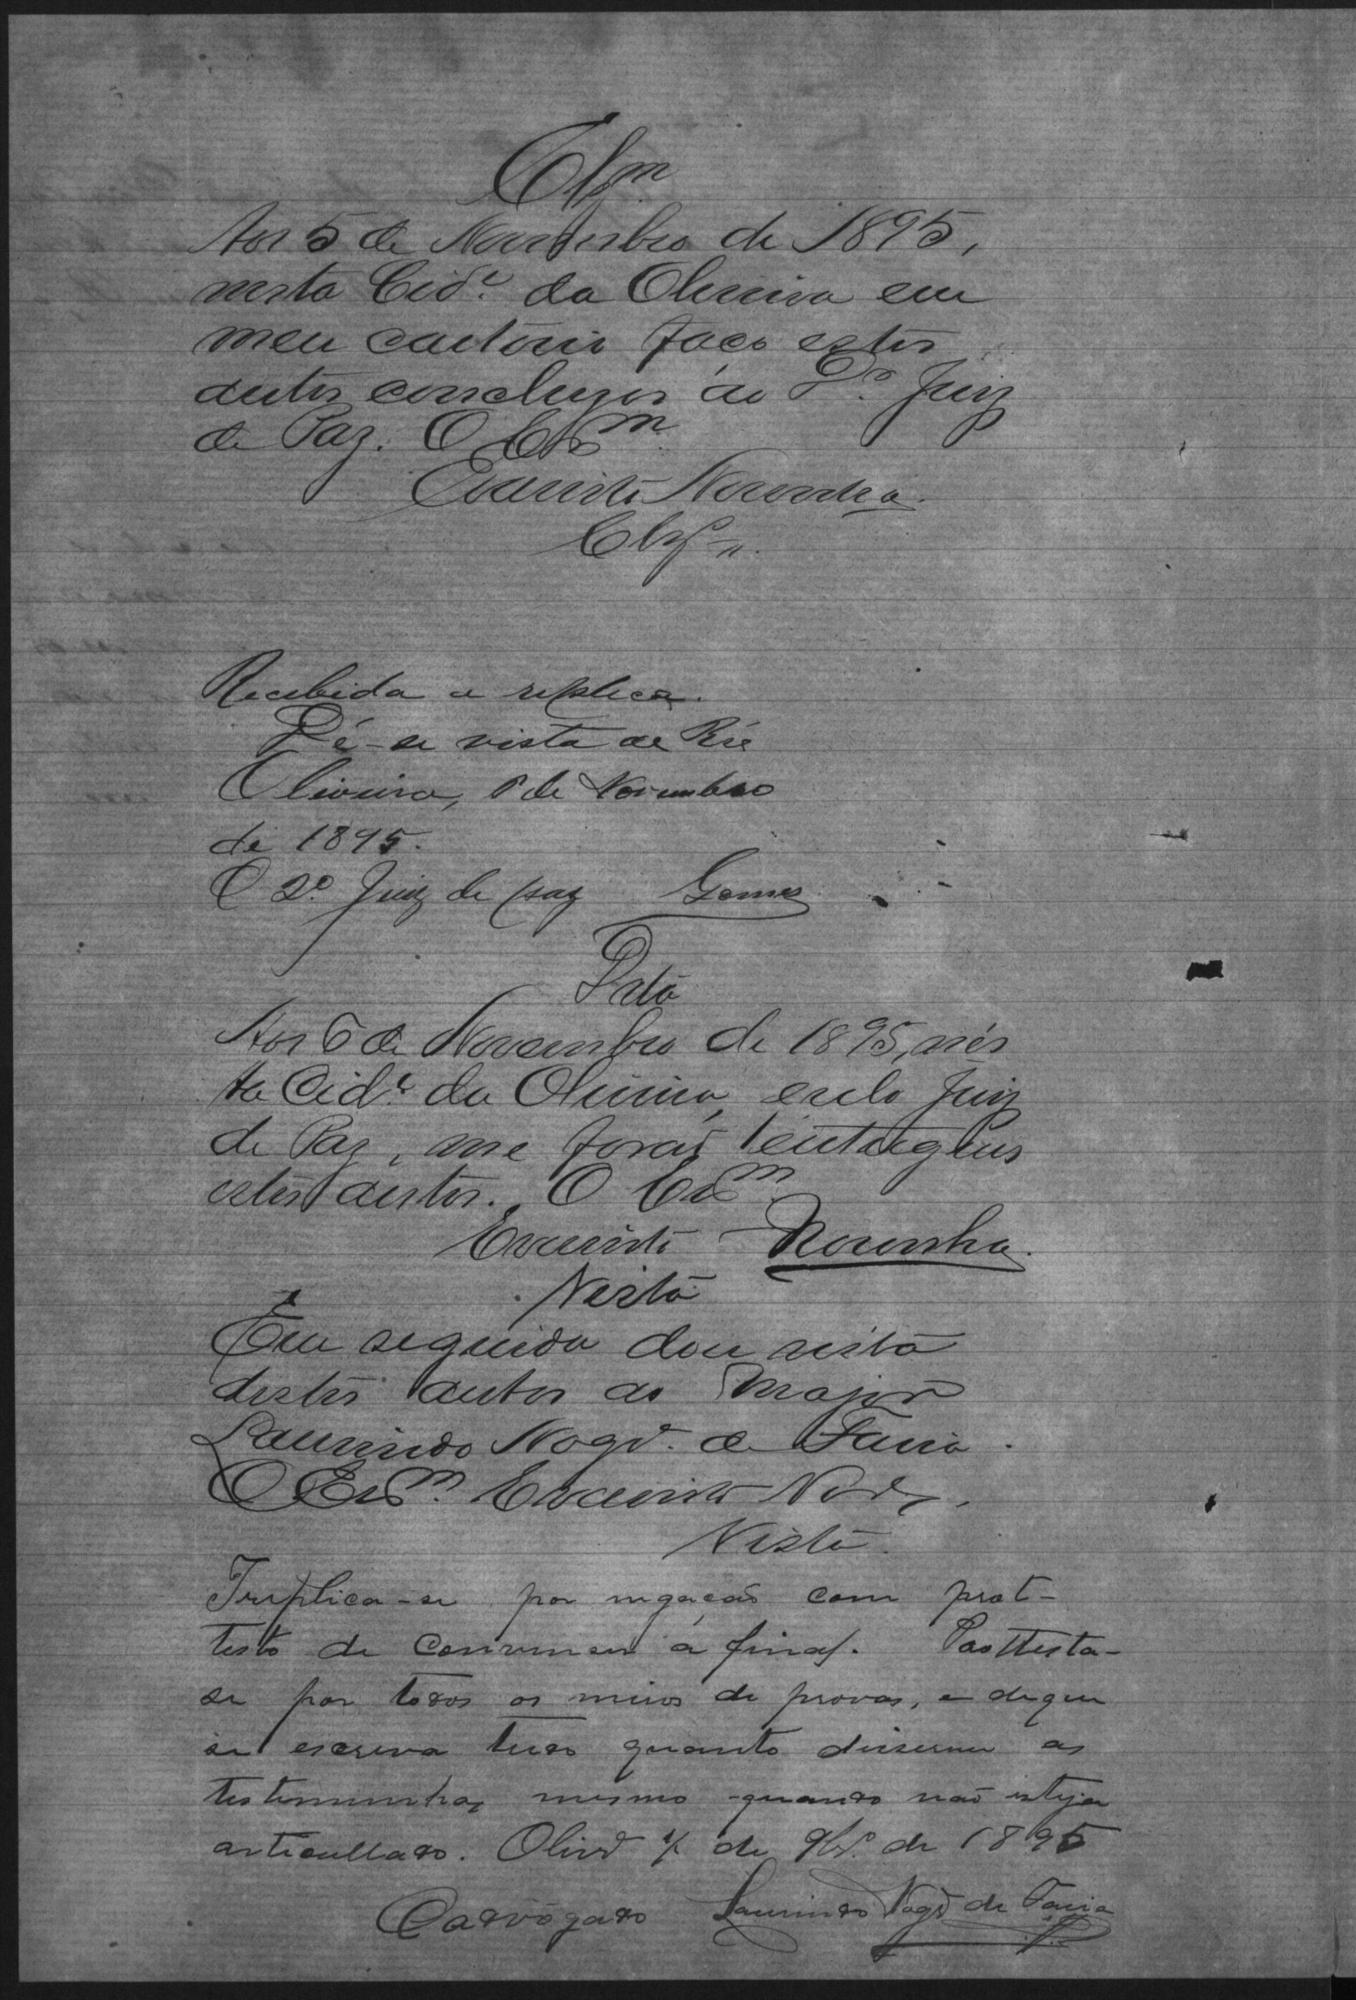 Clsm
Aos 5 de Novembro de 1895,
nesta Cid.e da Oliveira em
meu cartorio faço estes
autos conclusos ao Dr. Juiz
de Paz. O Escm
Evaristo Noronha.
Clz
Recebida a replica.
Dê-se vista ao Réo
Oliveira, 6 de Novembro
de 1895.
O 2º Juiz de paz Gomes
Data
Aos 6 de Novembro de 1895, nés
ta Cid.e da Oliveira, pelo Juiz
de Paz, me forão entregues
estes autos. O Escm
Evaristo Noronha.
Vista
Em seguida dou vista
destes autos ao Major
Laurindo Nogr.a de Faria.
O Escm. Evaristo Nor.a
Vista.
Treplica-se por negação com prot-
testo de convencer á final. Prottesta-
se por todos os meios de provas, e de que
se escreva tudo quanto disserem as
testemunhas mesmo quando não esteja
articullado. Olivr.a 7 de 9br.o de 1895
O advogado Laurindo Nogr.a de Faria